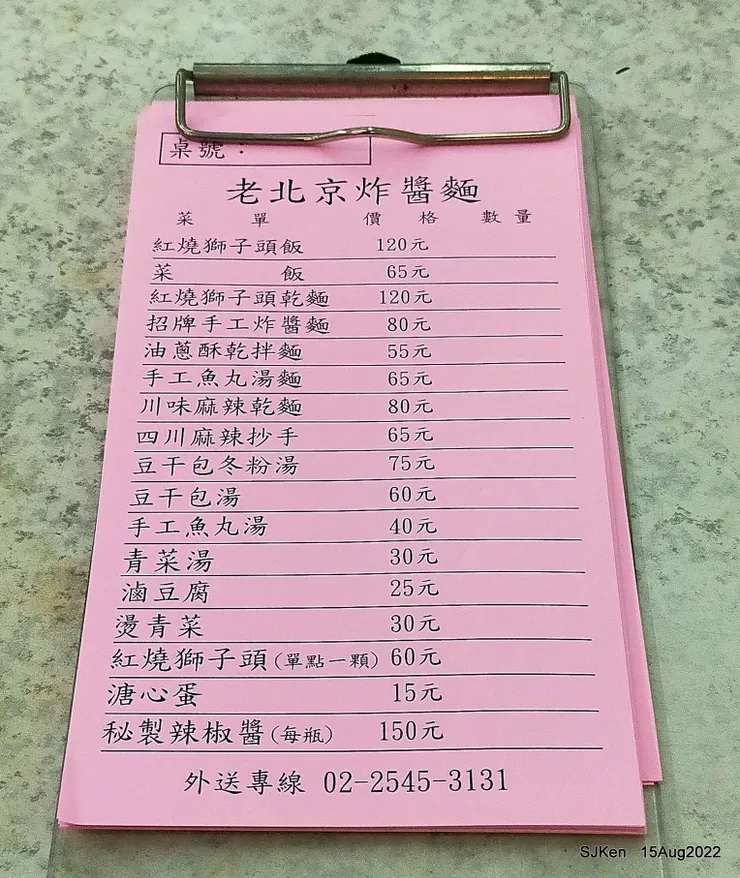 桌號：
老北京炸醬麵
菜單 價格 數量
紅燒獅子頭飯 120元
菜飯 65元
紅燒獅子頭乾麵 120元
招牌手工炸醬麵 80元
油蔥酥乾拌麵 55元
手工魚丸湯麵 65元
川味麻辣乾麵 80元
四川麻辣抄手 65元
豆干包冬粉湯 75元
豆干包湯 60元
手工魚丸湯 40元
青菜湯 30元
滷豆腐 25元
燙青菜 30元
紅燒獅子頭(單點一顆) 60元
溏心蛋 15元
秘製辣椒醬(每瓶) 150元
外送專線 02-2545-3131
SJKen 15Aug2022